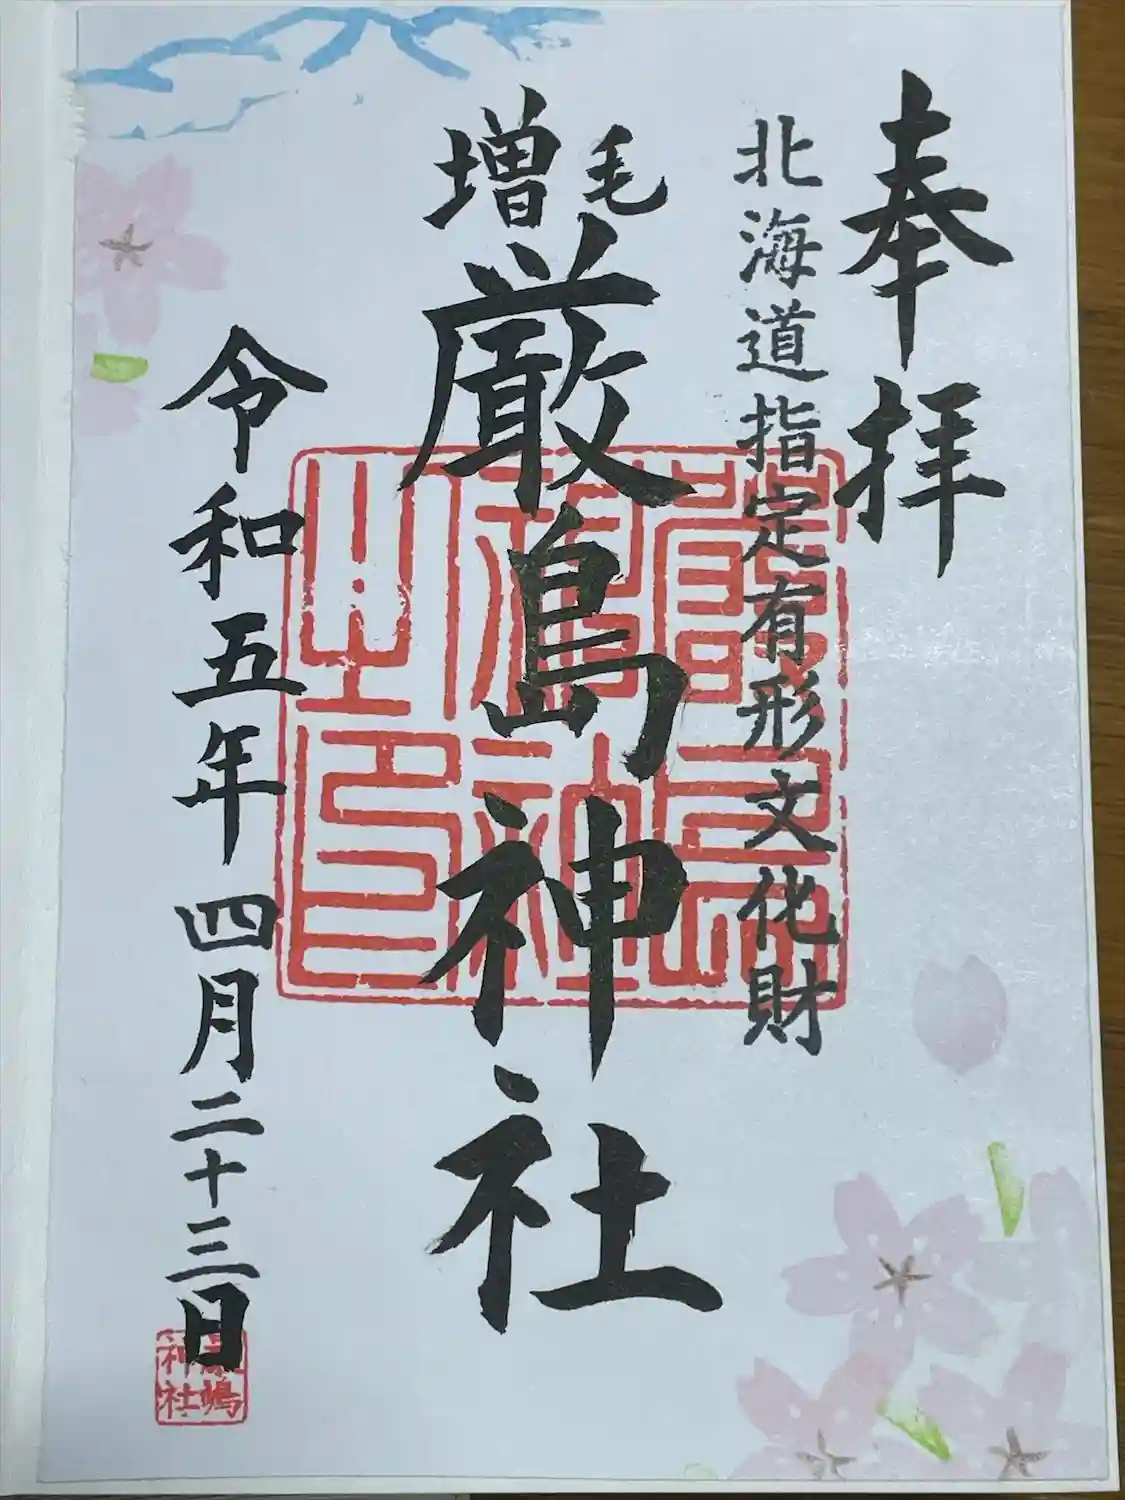 奉拝
北海道指定有形文化財
増毛
厳島神社
令和五年四月二十三日
厳島神社之印
厳嶋神社